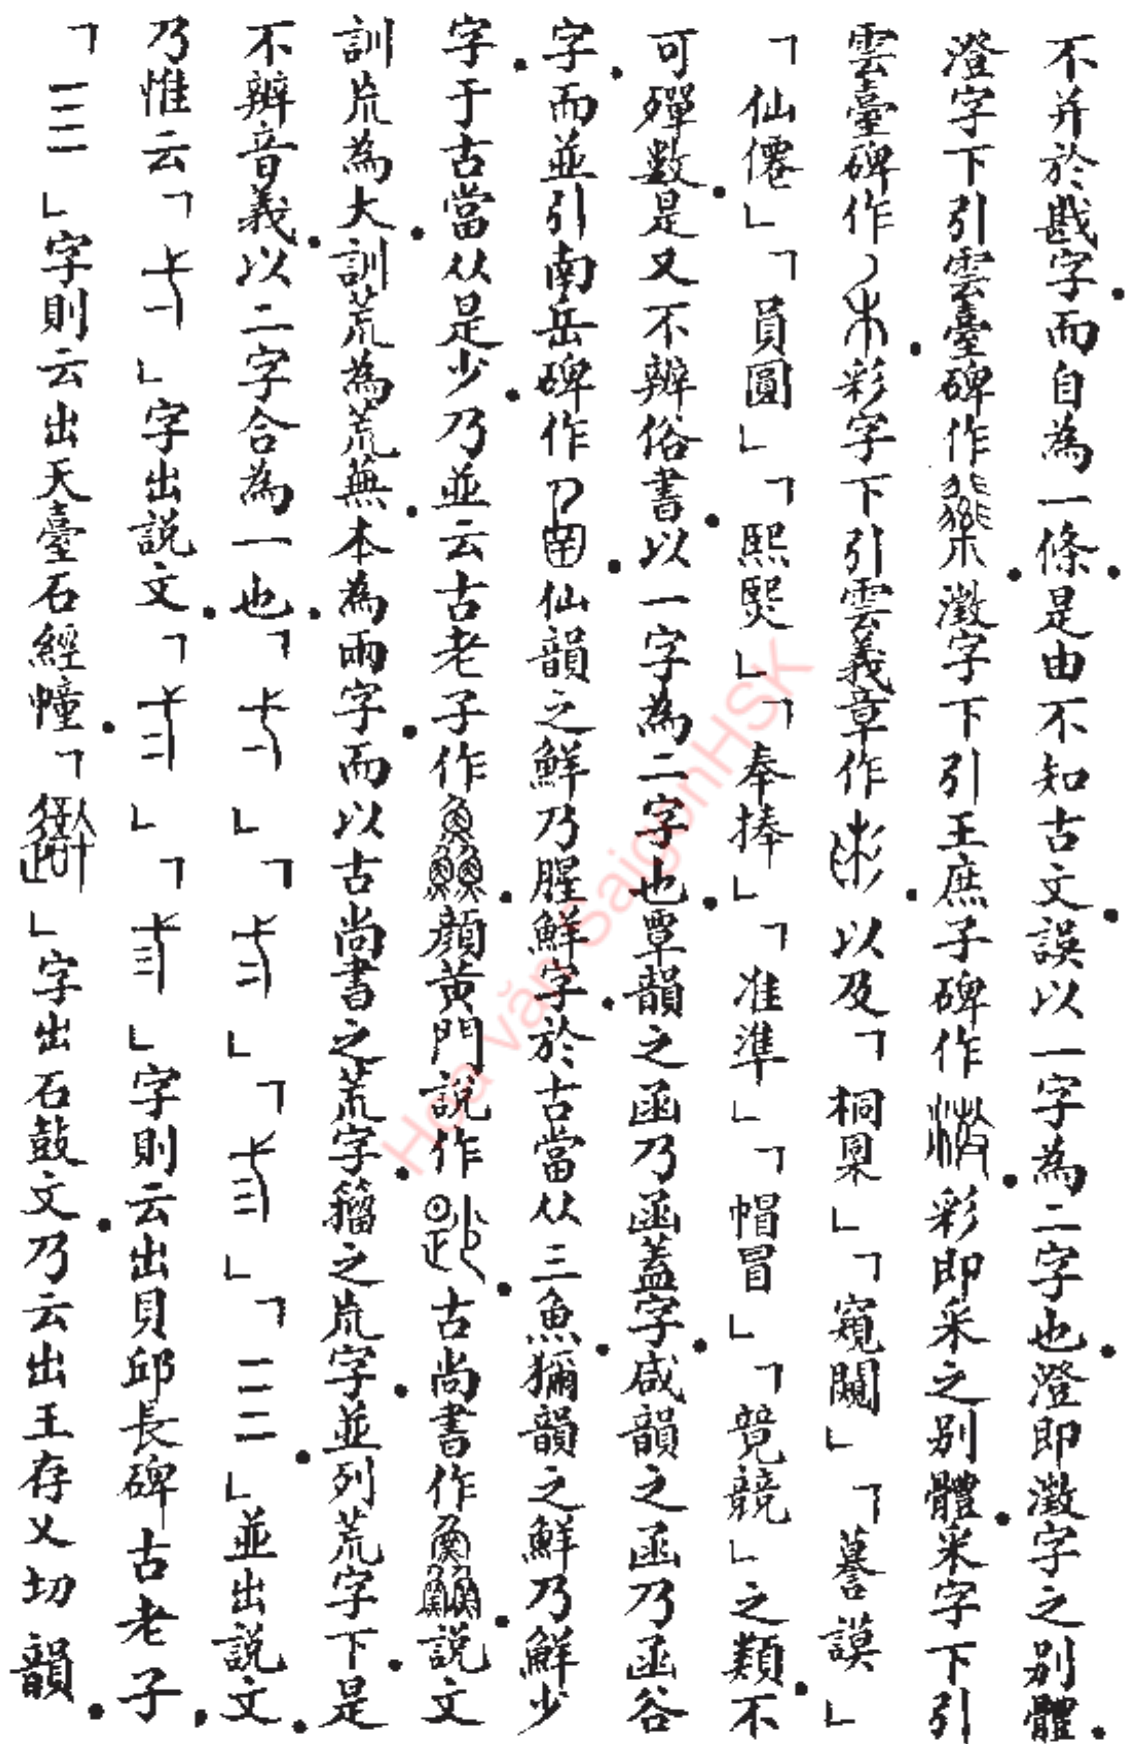 不并於戡字。而自為一條。是由不知古文。誤以一字為二字也。澄即澂字之别體。
澄字下引雲臺碑作。澂字下引王庶子碑作。彩即采之别體。采字下引
雲臺碑作。彩字下引雲義章作。以及「桐㮯」「窺闚」「謩謨」
「仙僊」「員圓」「熙煕」「奉捧」「准準」「帽冒」「競竸」之類。不
可殫數。是又不辨俗書。以一字為二字也。覃韻之函乃函蓋字。咸韻之函乃函谷
字。而並引南岳碑作。仙韻之鮮乃腥鮮字。於古當从三魚。獮韻之鮮乃鮮少
字。于古當从是少。乃並云古老子作。顏黃門說作。古尚書作。說文
訓巟為大。訓荒為荒蕪。本為兩字。而以古尚書之荒字。籀之巟字。並列荒字下。是
不辨音義。以二字合為一也。「」「」「」「二」。並出說文。
乃惟云「」字出說文。「」「」字則云出貝邱長碑古老子。
「三」字則云出天臺石經幢。「」字出石鼓文。乃云出王存乂切韻。
Hoa văn SaigonHSK